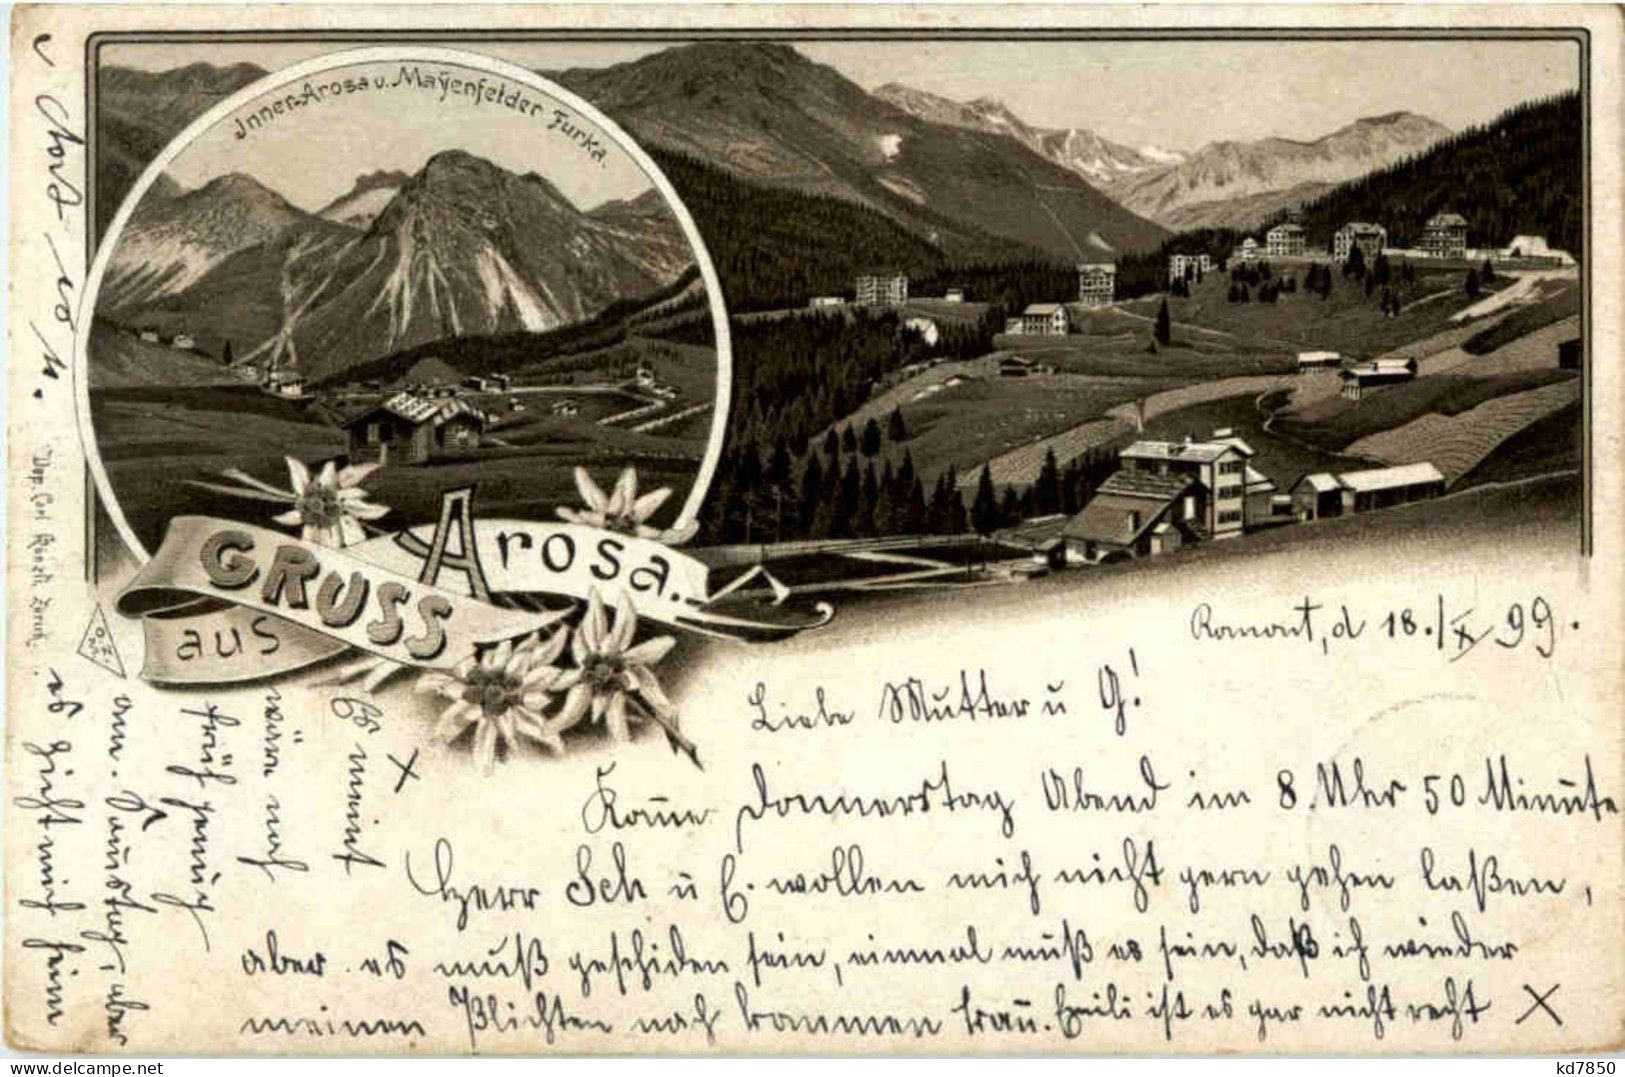 Inner-Arosa u. Mayenfelder Furka.
GRUSS
aus
Arosa.
Dep. Carl Künzli, Zürich.
Romont, d 18./X 99.
Liebe Mutter u G!
Kome Donnerstag Abend im 8 Uhr 50 Minute
Herr Sch u E. wollen mich nicht gern gehen laßen,
aber es muß geschiden sein, einmal muß es sein, daß ich wieder
meinen Pflichten nach kommen kann. Emili ist es gar nicht recht X
X
Es meint
wäre noch
früh genug
am Samstag, aber
es zieht mich heim
kd7850